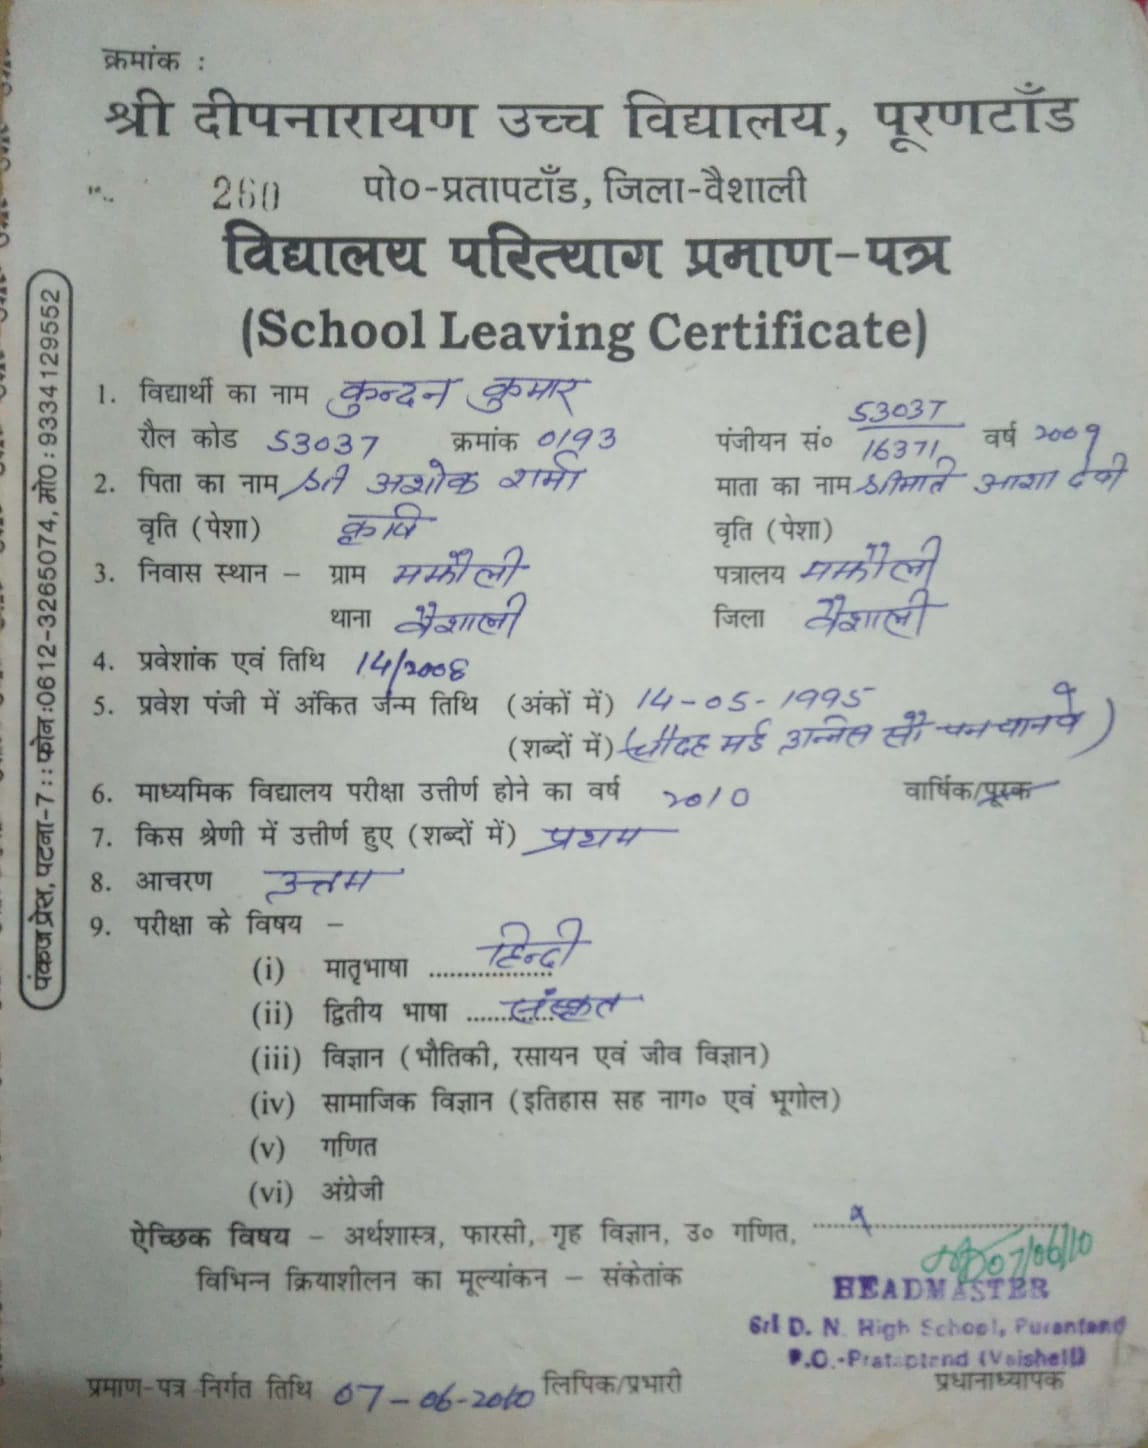 क्रमांक :
श्री दीपनारायण उच्च विद्यालय, पूरणटाँड
260 पो०-प्रतापटाँड, जिला-वैशाली
विद्यालय परित्याग प्रमाण-पत्र
(School Leaving Certificate)
1. विद्यार्थी का नाम कुन्दन कुमार
रौल कोड 53037 क्रमांक 0193 पंजीयन सं० 53037/16371 वर्ष 2009
2. पिता का नाम श्री अशोक शर्मा माता का नाम श्रीमति आशा देवी
वृति (पेशा) कृषि वृति (पेशा)
3. निवास स्थान - ग्राम मझौली पत्रालय मझौली
थाना वैशाली जिला वैशाली
4. प्रवेशांक एवं तिथि 14/2008
5. प्रवेश पंजी में अंकित जन्म तिथि (अंकों में) 14-05-1995
(शब्दों में) (चौदह मई उन्नीस सौ पनचानवे)
6. माध्यमिक विद्यालय परीक्षा उत्तीर्ण होने का वर्ष 2010 वार्षिक/पूरक
7. किस श्रेणी में उत्तीर्ण हुए (शब्दों में) प्रथम
8. आचरण उत्तम
9. परीक्षा के विषय -
(i) मातृभाषा .................. हिन्दी
(ii) द्वितीय भाषा ............. संस्कृत
(iii) विज्ञान (भौतिकी, रसायन एवं जीव विज्ञान)
(iv) सामाजिक विज्ञान (इतिहास सह नाग० एवं भूगोल)
(v) गणित
(vi) अंग्रेजी
ऐच्छिक विषय - अर्थशास्त्र, फारसी, गृह विज्ञान, उ० गणित, ..............................
07/06/10
विभिन्न क्रियाशीलन का मूल्यांकन - संकेतांक
HEADMASTER
Sri D. N. High School, Purantand
P.O.-Prataptand (Vaishali)
प्रमाण-पत्र निर्गत तिथि 07-06-2010 लिपिक/प्रभारी प्रधानाध्यापक
पंकज प्रेस, पटना-7 :: फोन :0612-3265074, मो0 : 9334129552